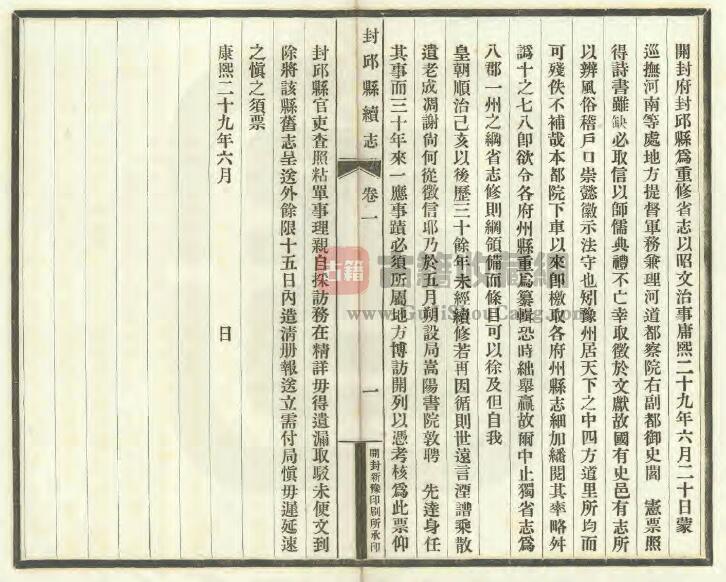 開封府封邱縣為重修省志以昭文治事庸熙二十九年六月二十日蒙
巡撫河南等處地方提督軍務兼理河道都察院右副都御史閻　憲票照
得詩書雖缺必取信以師儒典禮不亡幸取徵於文獻故國有史邑有志所
以辨風俗稽戶口崇懿徽示法守也矧豫州居天下之中四方道里所均而
可殘佚不補哉本都院下車以來卽檄取各府州縣志細加繙閱其率略舛
譌十之七八卽欲令各府州縣重為纂輯恐時絀舉贏故爾中止獨省志為
八郡一州之綱省志修則綱領備而條目可以徐及但自我
皇朝順治己亥以後歷三十餘年未經續修若再因循則世遠言湮譜乘散
遺老成凋謝尙何從徵信耶乃於五月朔設局嵩陽書院敦聘　先達身任
其事而三十年來一應事蹟必須所屬地方博訪開列以憑考核為此票仰
封邱縣續志
卷一
一
開封新豫印刷所承印
封邱縣官吏查照粘單事理親自採訪務在精詳毋得遺漏取駁未便文到
除將該縣舊志呈送外餘限十五日內造清册報送立需付局愼毋遲延速
之愼之須票
康熙二十九年六月　日
古籍
古籍收藏網
www.GujiShouCang.com